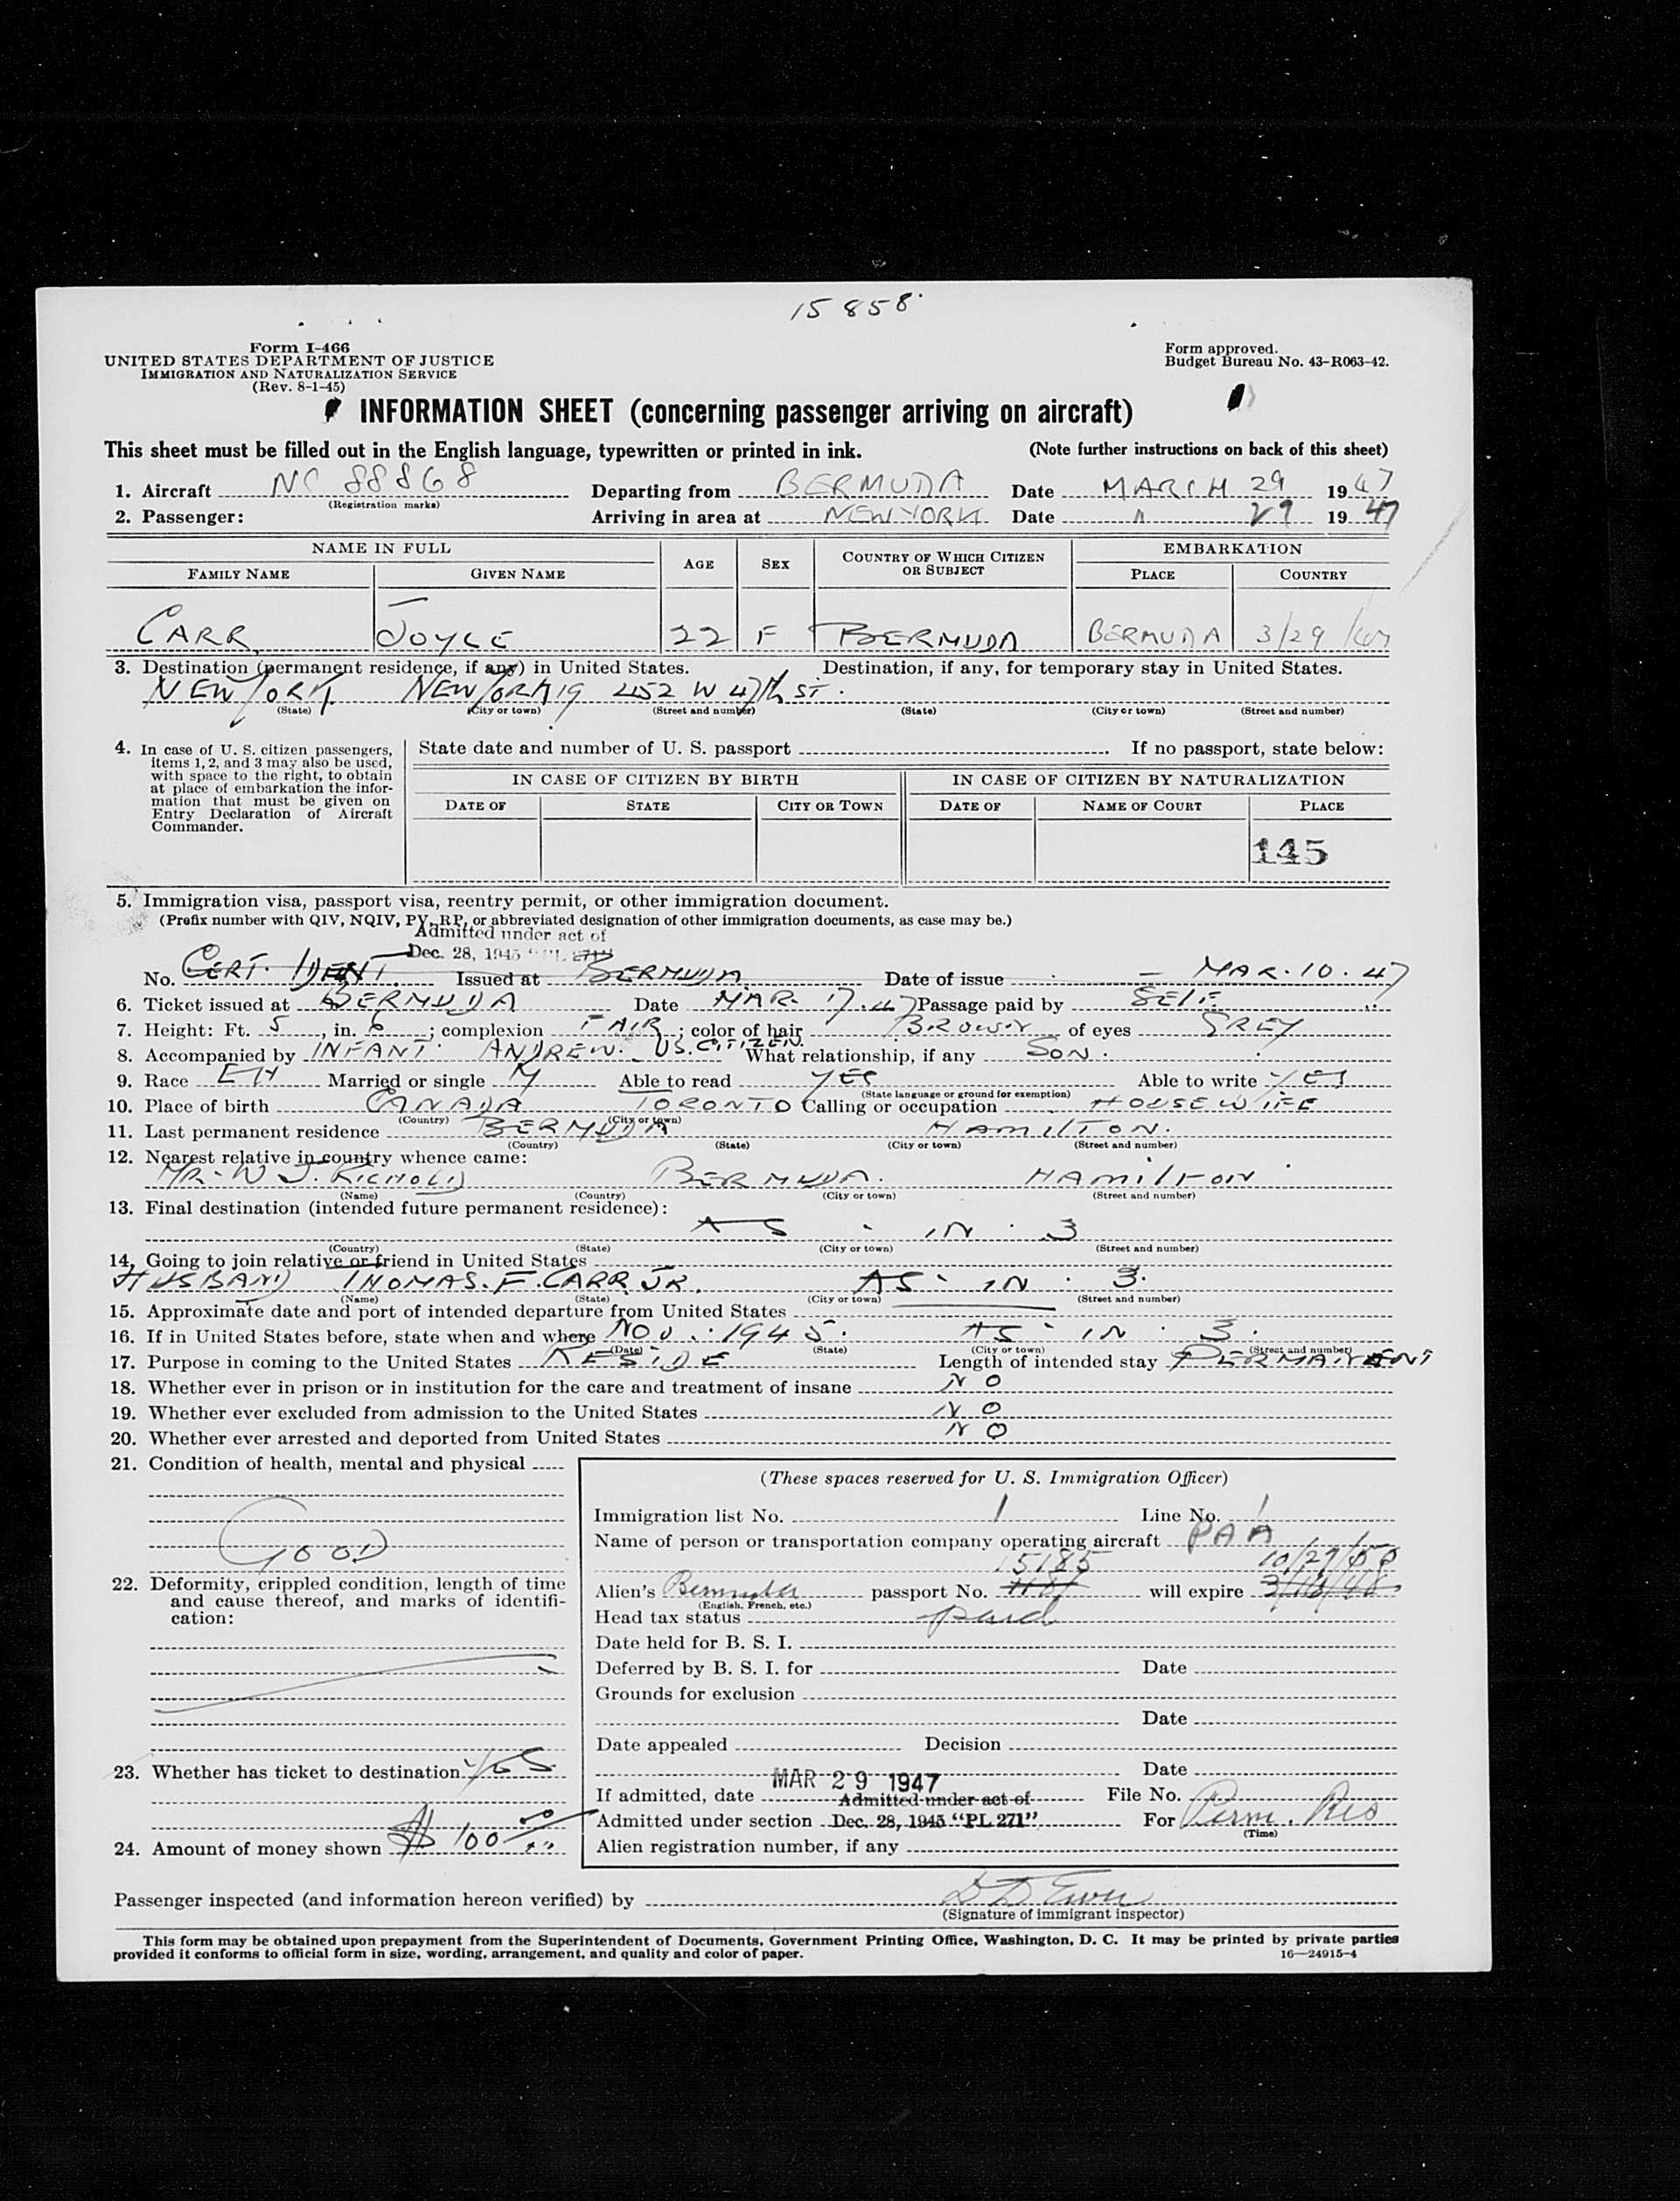 15858
Form I-466
UNITED STATES DEPARTMENT OF JUSTICE
IMMIGRATION AND NATURALIZATION SERVICE
(Rev. 8-1-45)
Form approved.
Budget Bureau No. 43-R063-42.
INFORMATION SHEET (concerning passenger arriving on aircraft)
This sheet must be filled out in the English language, typewritten or printed in ink. (Note further instructions on back of this sheet)
1. Aircraft NC 88868 Departing from BERMUDA Date MARCH 29 1947
(Registration marks)
2. Passenger: Arriving in area at NEW YORK Date " 29 1947
NAME IN FULL AGE SEX COUNTRY OF WHICH CITIZEN OR SUBJECT EMBARKATION
FAMILY NAME GIVEN NAME PLACE COUNTRY
CARR JOYCE 22 F BERMUDA BERMUDA 3/29/47
3. Destination (permanent residence, if any) in United States. Destination, if any, for temporary stay in United States.
NEW YORK NEW YORK 19 452 W 47th ST.
(State) (City or town) (Street and number) (State) (City or town) (Street and number)
4. In case of U. S. citizen passengers, items 1, 2, and 3 may also be used, with space to the right, to obtain at place of embarkation the information that must be given on Entry Declaration of Aircraft Commander.
State date and number of U. S. passport If no passport, state below:
IN CASE OF CITIZEN BY BIRTH IN CASE OF CITIZEN BY NATURALIZATION
DATE OF STATE CITY OR TOWN DATE OF NAME OF COURT PLACE
145
5. Immigration visa, passport visa, reentry permit, or other immigration document.
(Prefix number with QIV, NQIV, PV, RP, or abbreviated designation of other immigration documents, as case may be.)
Admitted under act of
Dec. 28, 1945 "PL 271"
No. CERT. IDENT. Issued at BERMUDA Date of issue MAR. 10. 47
6. Ticket issued at BERMUDA Date MAR. 17. 47 Passage paid by SELF
7. Height: Ft. 5, in. 6; complexion FAIR; color of hair BROWN of eyes GREY
8. Accompanied by INFANT ANDREW. US. CITIZEN. What relationship, if any SON.
9. Race EH Married or single M Able to read YES Able to write YES
(State language or ground for exemption)
10. Place of birth CANADA TORONTO Calling or occupation HOUSEWIFE
(Country) (City or town)
11. Last permanent residence BERMUDA HAMILTON.
(Country) (State) (City or town) (Street and number)
12. Nearest relative in country whence came:
MR. W. J. BERMUDA. HAMILTON
(Name) (Country) (City or town) (Street and number)
13. Final destination (intended future permanent residence):
AS IN 3
(Country) (State) (City or town) (Street and number)
14. Going to join relative or friend in United States
HUSBAND THOMAS. F. CARR. JR. AS IN 3.
(Name) (State) (City or town) (Street and number)
15. Approximate date and port of intended departure from United States
16. If in United States before, state when and where NOV. 1945. AS IN 3.
(Date) (State) (City or town) (Street and number)
17. Purpose in coming to the United States RESIDE Length of intended stay PERMANENT
18. Whether ever in prison or in institution for the care and treatment of insane NO
19. Whether ever excluded from admission to the United States NO
20. Whether ever arrested and deported from United States NO
21. Condition of health, mental and physical
GOOD
22. Deformity, crippled condition, length of time and cause thereof, and marks of identification:
23. Whether has ticket to destination YES
24. Amount of money shown $100 00
(These spaces reserved for U. S. Immigration Officer)
Immigration list No. 1 Line No. 1
Name of person or transportation company operating aircraft PAA
5185 10/29/50
Alien's Bermuda passport No. will expire 3/16/48
(English, French, etc.)
Head tax status paid
Date held for B. S. I.
Deferred by B. S. I. for Date
Grounds for exclusion
Date
Date appealed Decision
Date
If admitted, date MAR 29 1947 File No.
Admitted under act of
Admitted under section Dec. 28, 1945 "PL 271" For Perm. Res
(Time)
Alien registration number, if any
Passenger inspected (and information hereon verified) by
(Signature of immigrant inspector)
This form may be obtained upon prepayment from the Superintendent of Documents, Government Printing Office, Washington, D. C. It may be printed by private parties
provided it conforms to official form in size, wording, arrangement, and quality and color of paper. 16—24915-4